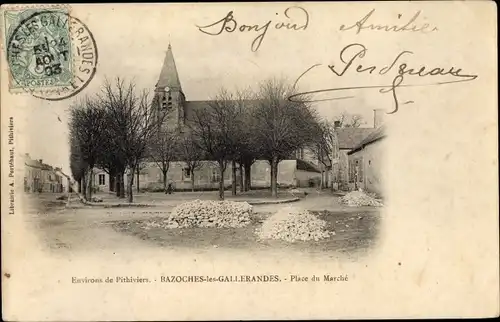 Bonjour Amitié
Perdereau
BAZOCHES-LES-GALLERANDES
Librairie A. Perthuot, Pithiviers
Environs de Pithiviers. - BAZOCHES-les-GALLERANDES. - Place du Marché